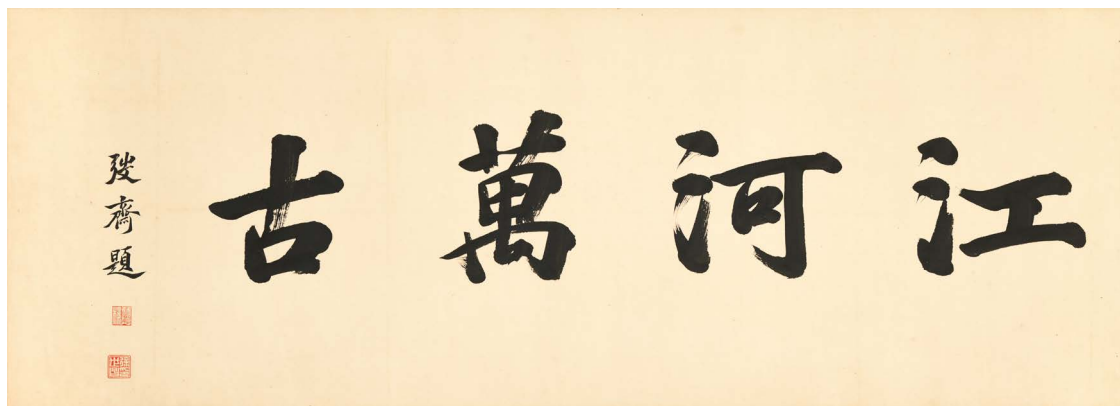 江河萬古
弢齋題